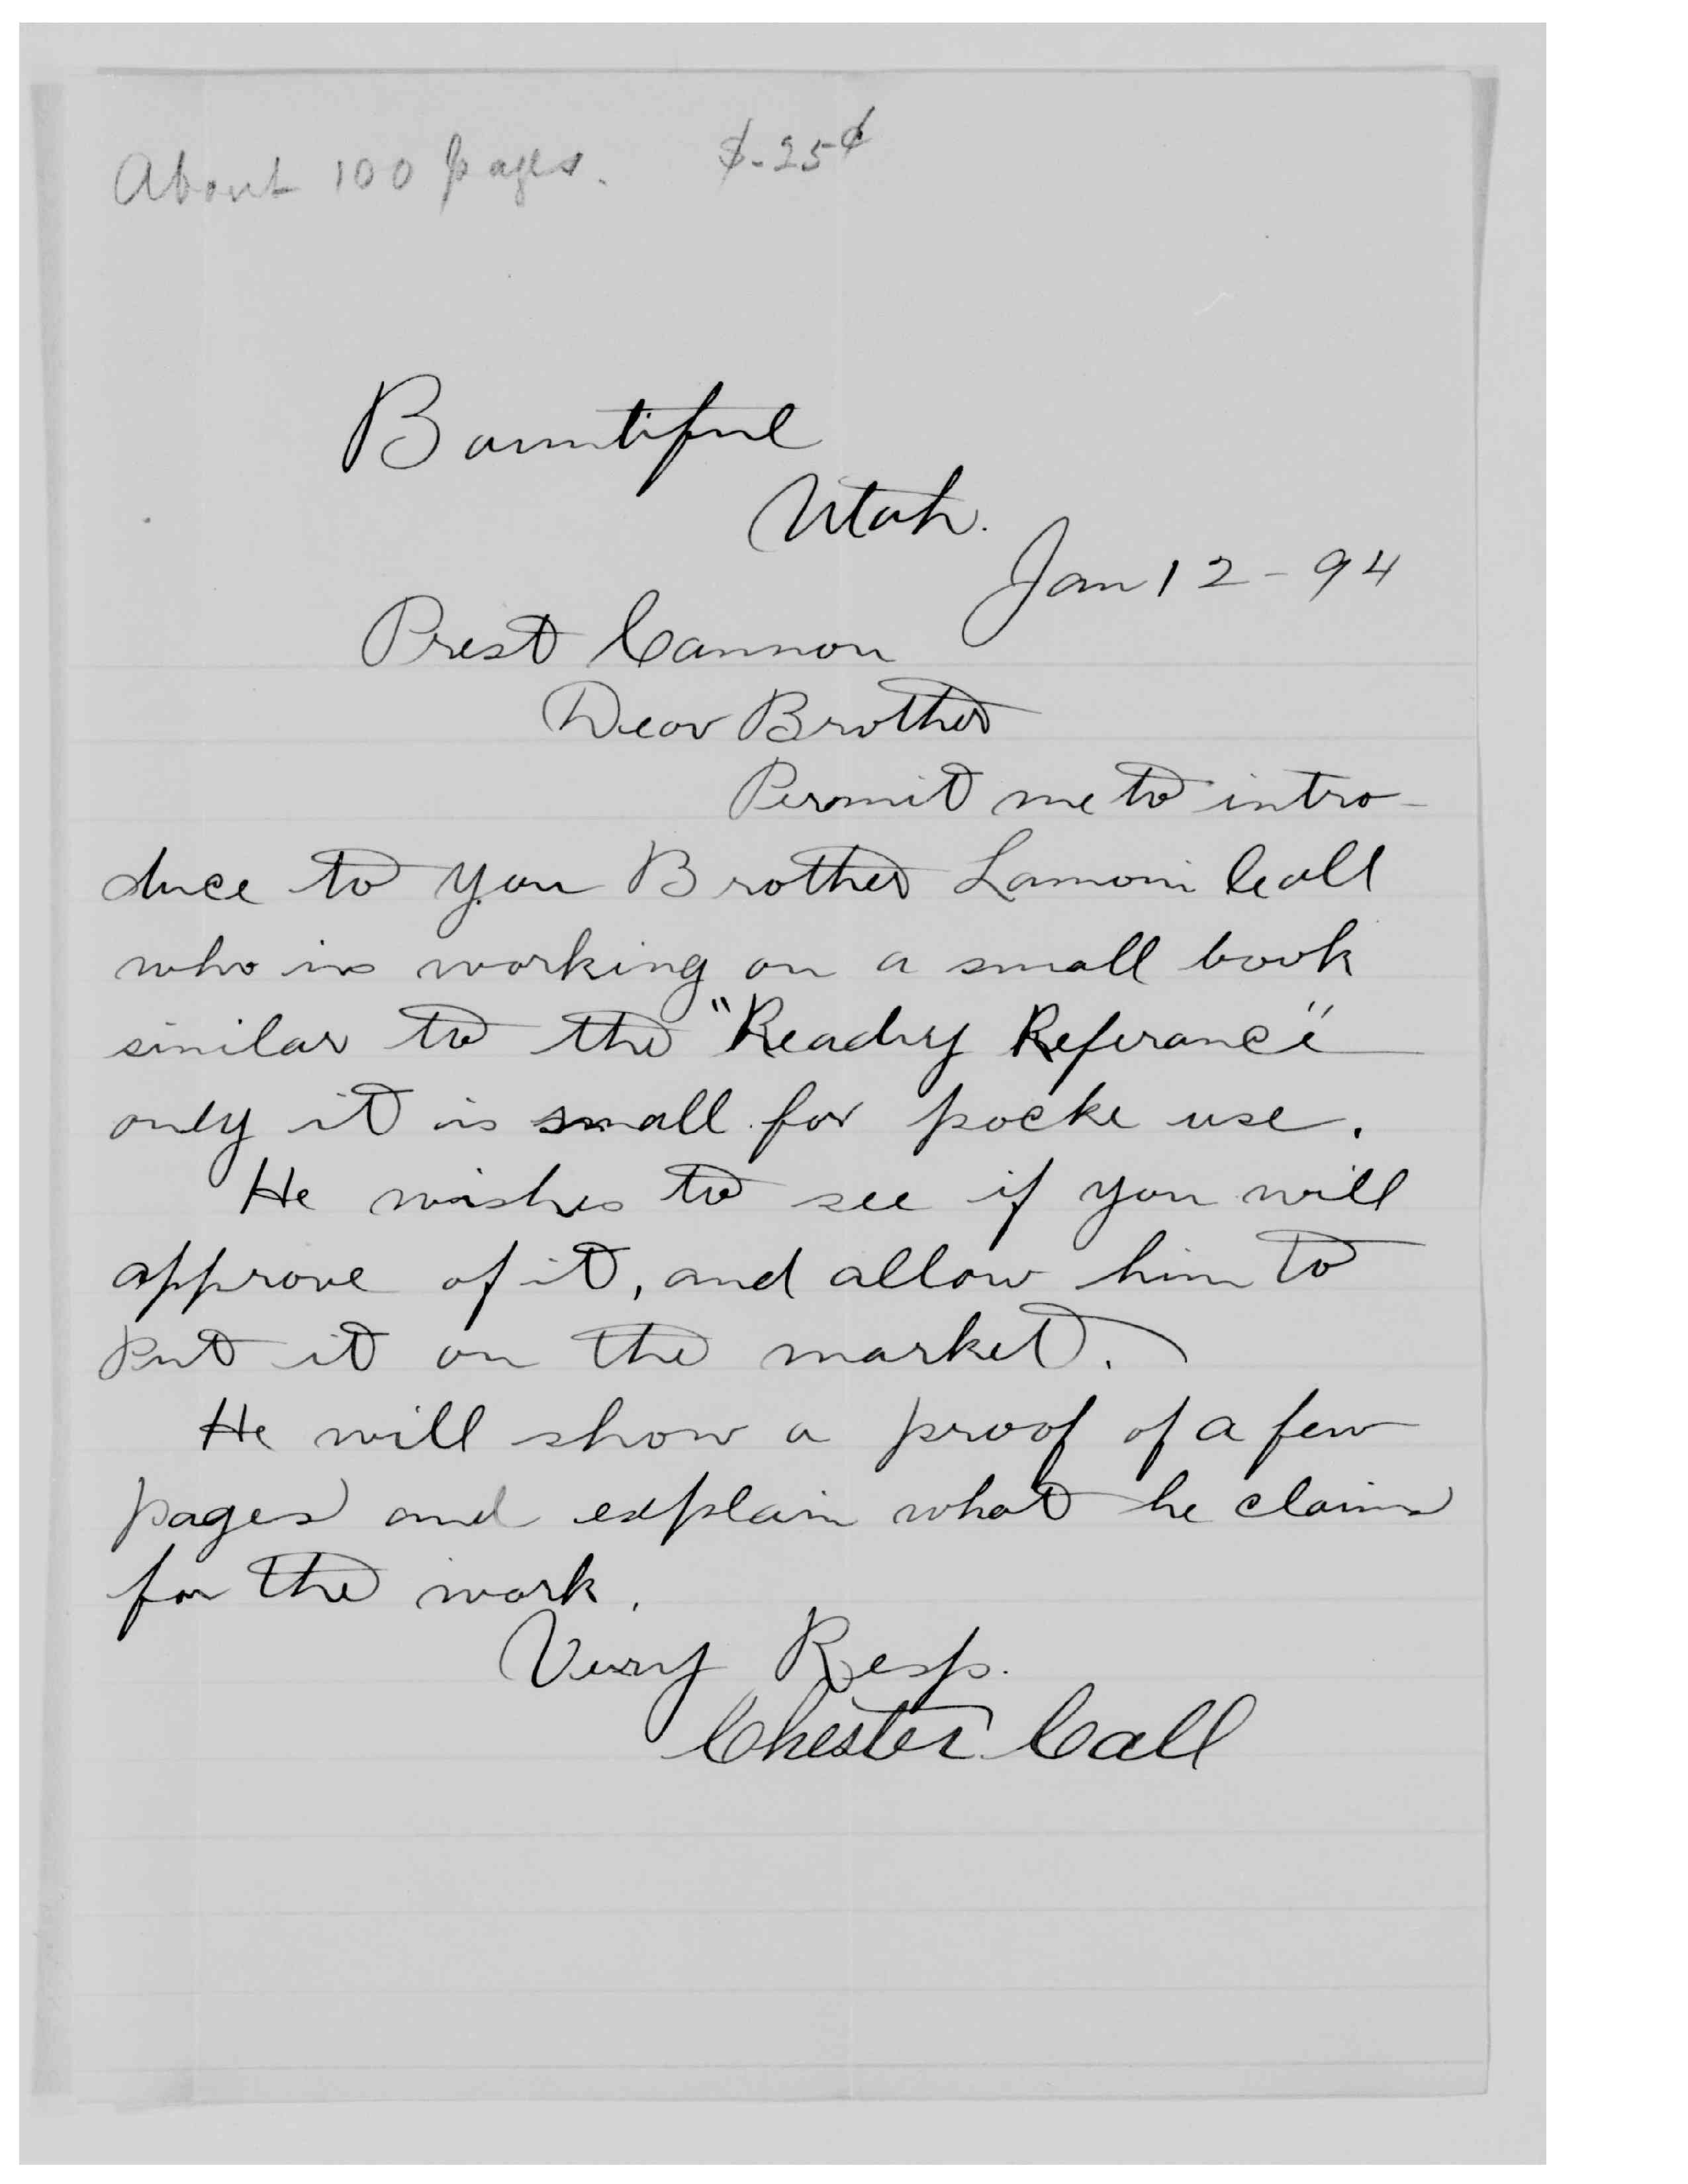 About 100 pages. $-25¢
Bountiful
Utah.
Jan 12-94
Prest Cannon
Dear Brother
Permit me to intro-
duce to you Brother Lamoni Call
who is working on a small book
similar to the "Ready Referance"
only it is small for pocke use.
He wishes to see if you will
approve of it, and allow him to
put it on the market.
He will show a proof of a few
pages and explain what he claims
for the work.
Very Resp.
Chester Call